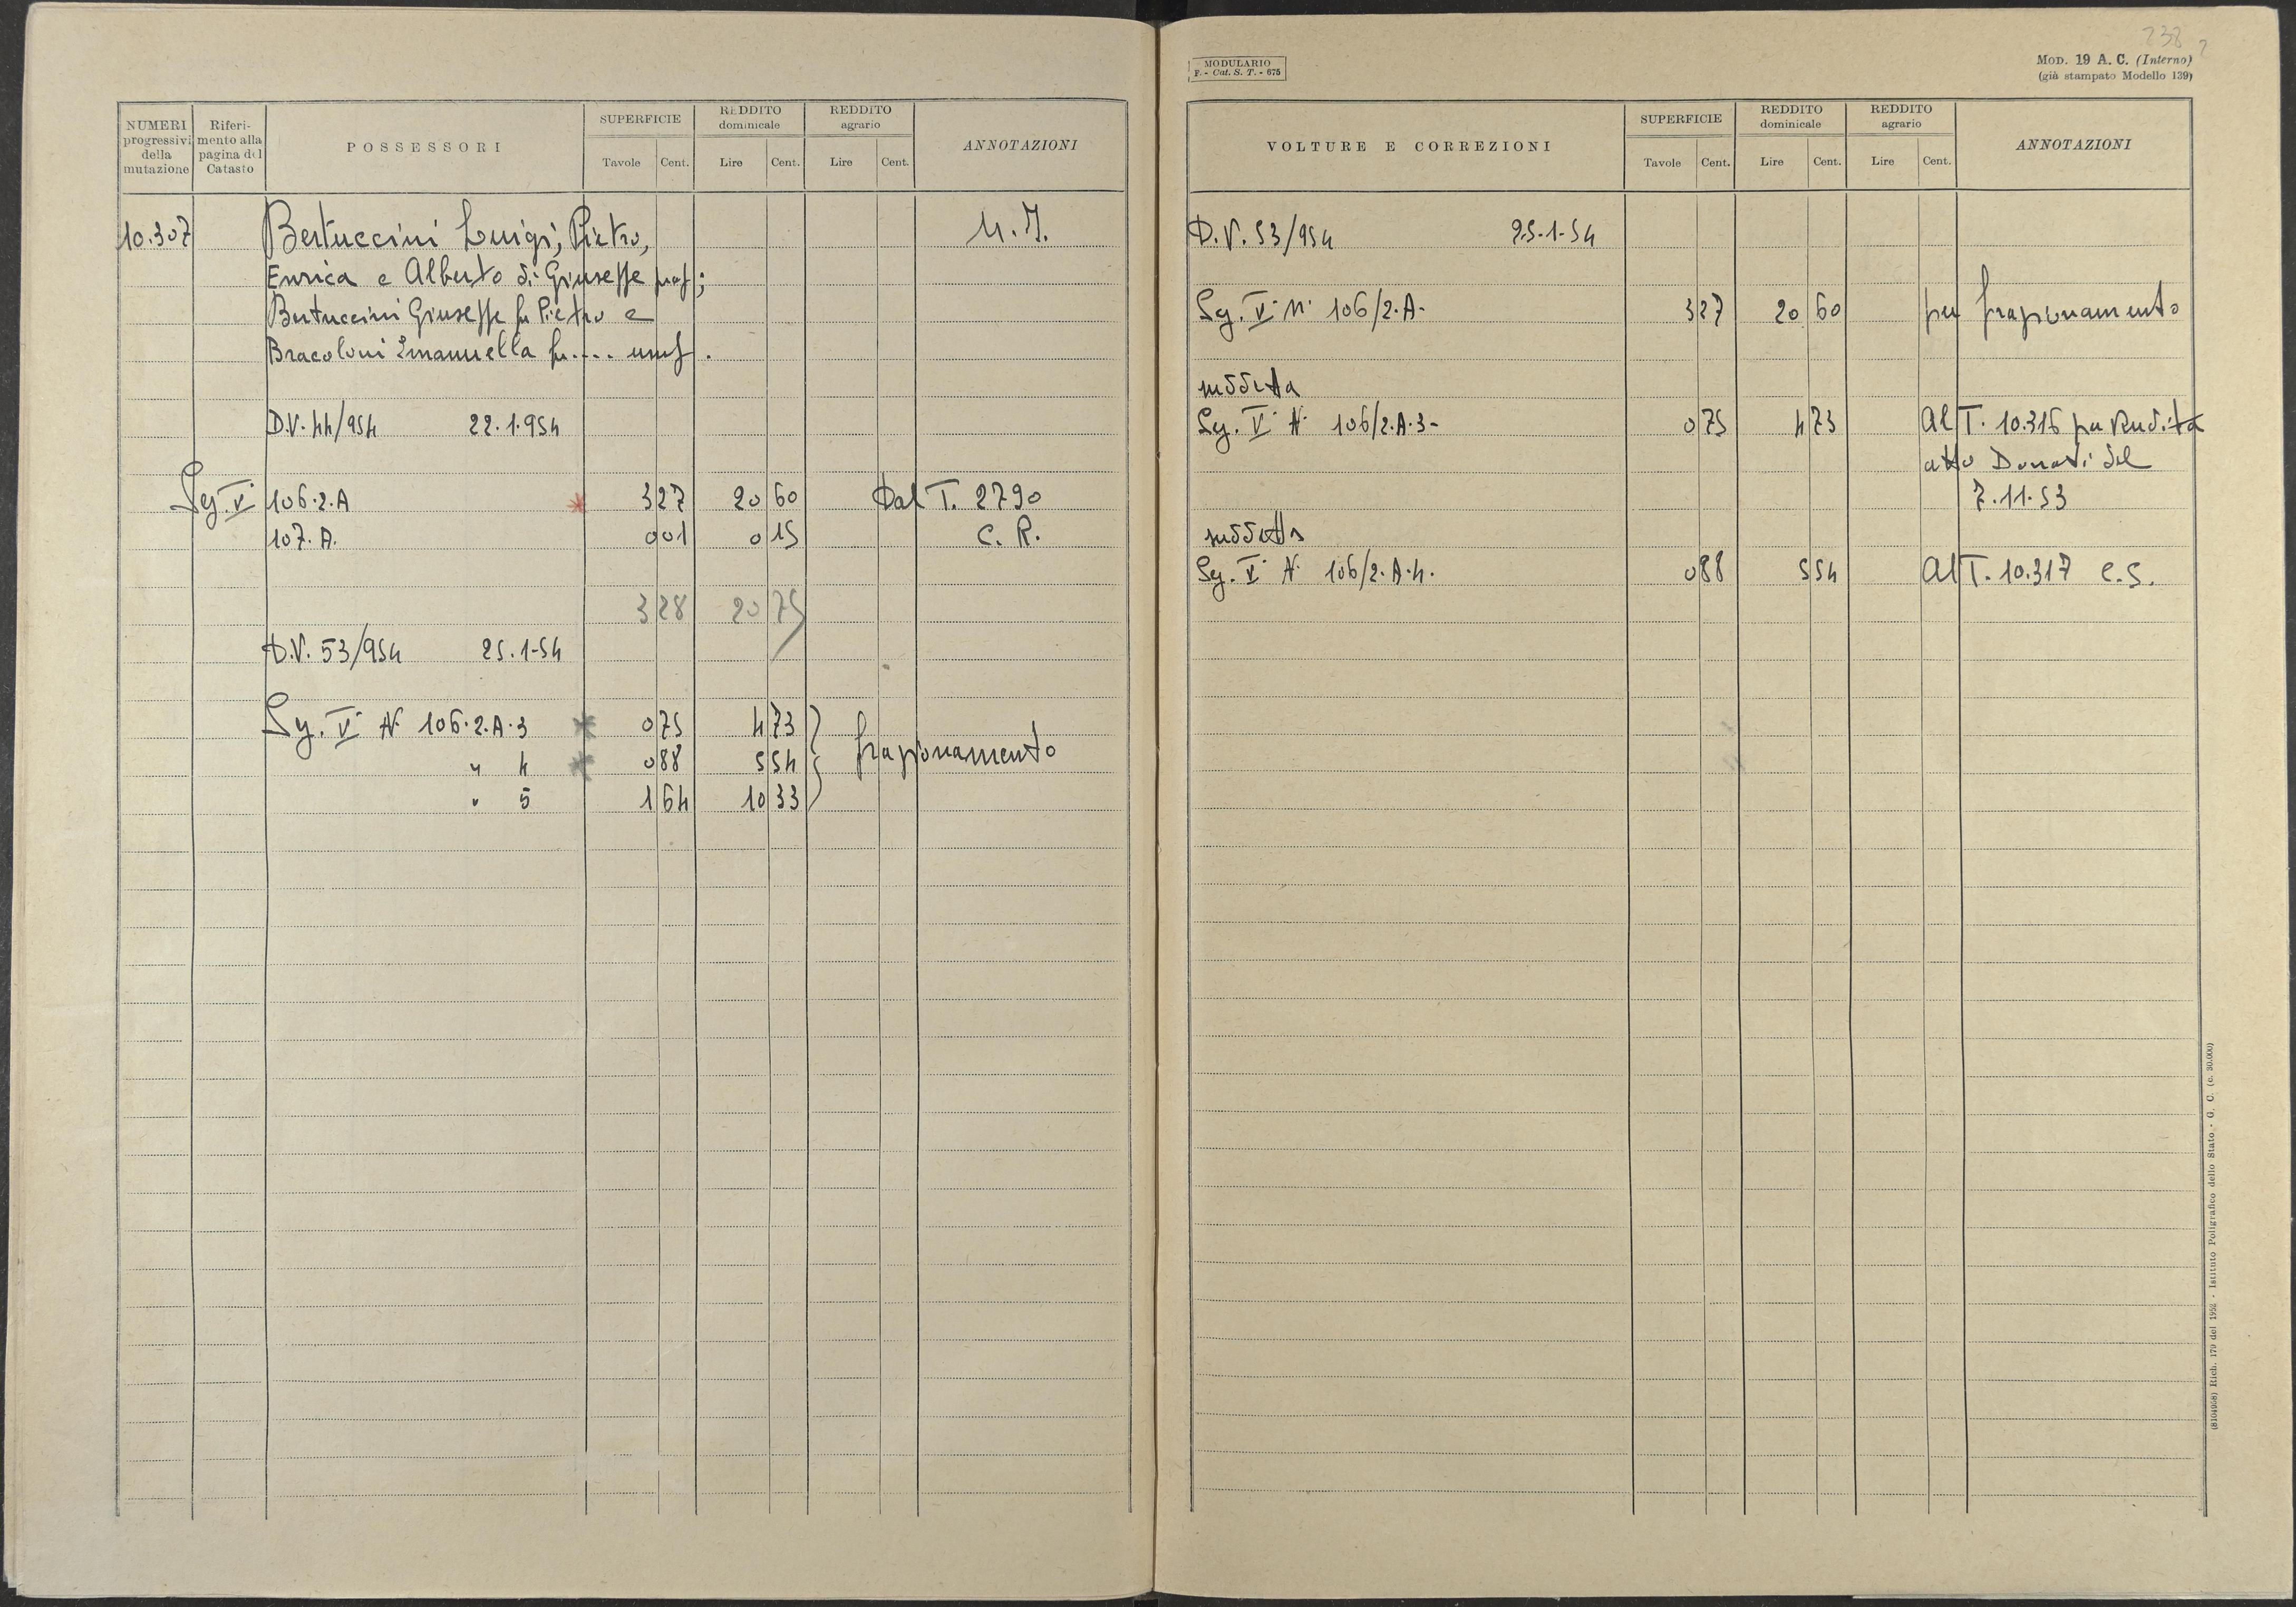 NUMERI progressivi della mutazione
Riferimento alla pagina del Catasto
POSSESSORI
SUPERFICIE
Tavole Cent.
REDDITO dominicale
Lire Cent.
REDDITO agrario
Lire Cent.
ANNOTAZIONI
10.307 Bertuccini Luigi, Pietro, M.I.
Enrica e Alberto di Giuseppe prop;
Bertuccini Giuseppe fu Pietro e
Bracoloni Emanuella fu.... usuf.
D.V. 44/954 22.1.954
Sez. V 106.2.A * 3 27 20 60 Dal T. 2790
107.A. 0 01 0 15 C.R.
3 28 20 75
D.V. 53/954 25.1-54
Sez. V N. 106.2.A.3 * 0 75 4 73
" 4 * 0 88 5 54 frazionamento
" 5 1 64 10 33
238
MODULARIO
F. - Cat. S. T. - 675
MOD. 19 A. C. (Interno)
(già stampato Modello 139)
VOLTURE E CORREZIONI
SUPERFICIE
Tavole Cent.
REDDITO dominicale
Lire Cent.
REDDITO agrario
Lire Cent.
ANNOTAZIONI
D.V. 53/954 25-1-54
Sez. V N. 106/2.A- 3 27 20 60 per frazionamento
suddetta
Sez. V N. 106/2.A.3- 0 75 4 73 Al T. 10.316 per vendita
atto Donati del
7.11.53
suddetta
Sez. V N. 106/2.A.4. 0 88 5 54 Al T. 10.317 c.s.
(8104958) Rich. 179 del 1952 - Istituto Poligrafico dello Stato - G. C. (c. 30.000)